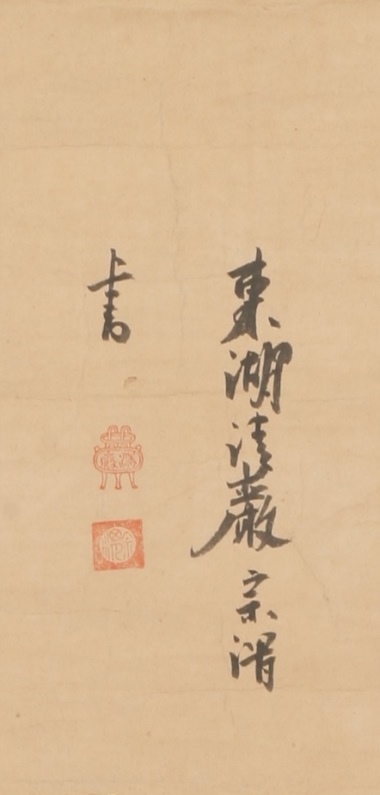 東湖清巌宗渭
書